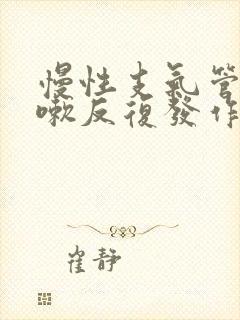 慢性支氣管
嗽反復發作
崔靜